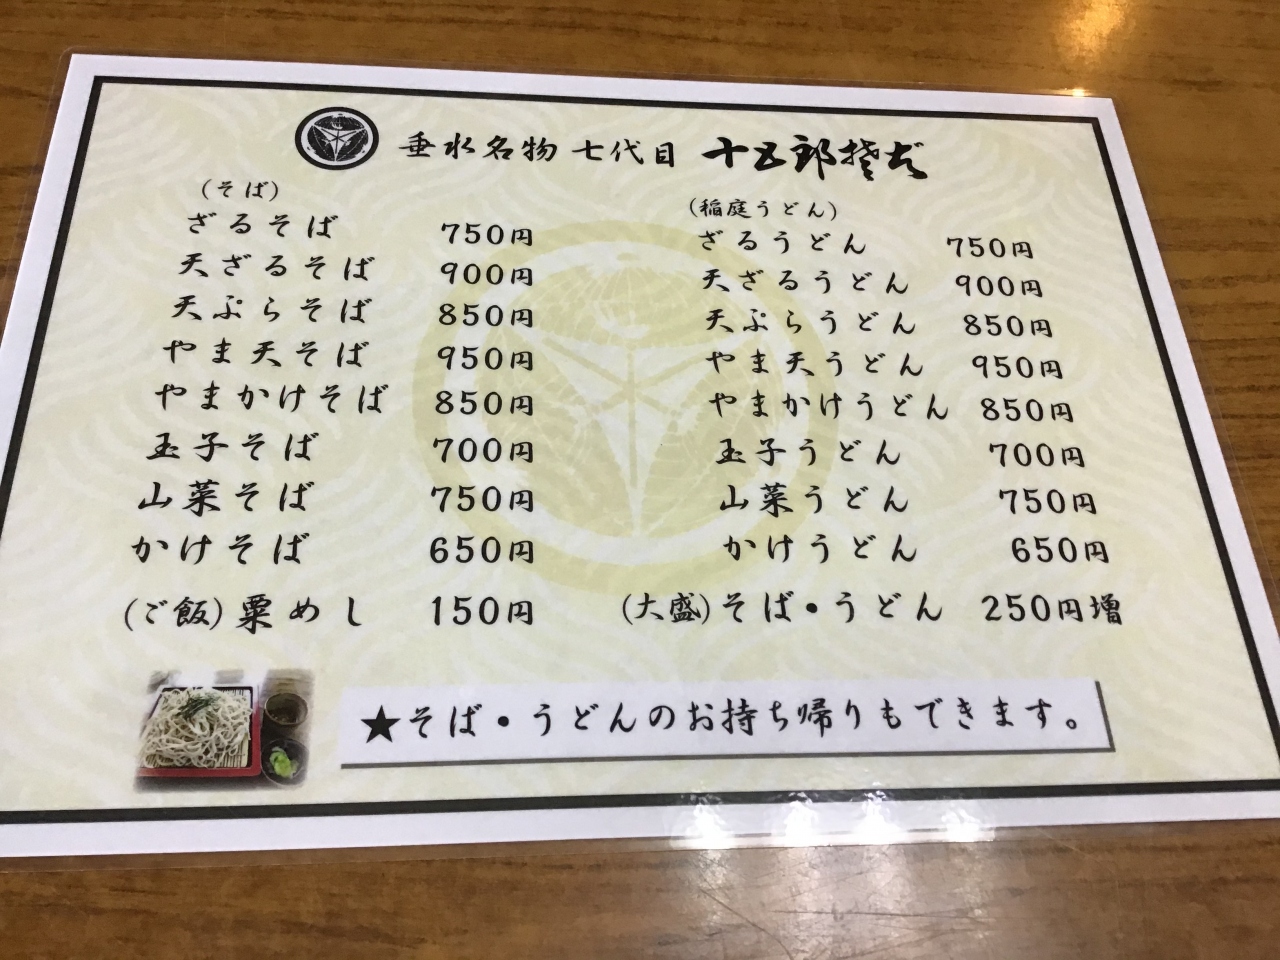 垂水名物 七代目 十五郎そば
(そば)
ざるそば 750円
天ざるそば 900円
天ぷらそば 850円
やま天そば 950円
やまかけそば 850円
玉子そば 700円
山菜そば 750円
かけそば 650円
(ご飯)粟めし 150円
(稲庭うどん)
ざるうどん 750円
天ざるうどん 900円
天ぷらうどん 850円
やま天うどん 950円
やまかけうどん 850円
玉子うどん 700円
山菜うどん 750円
かけうどん 650円
(大盛)そば・うどん 250円増
★そば・うどんのお持ち帰りもできます。